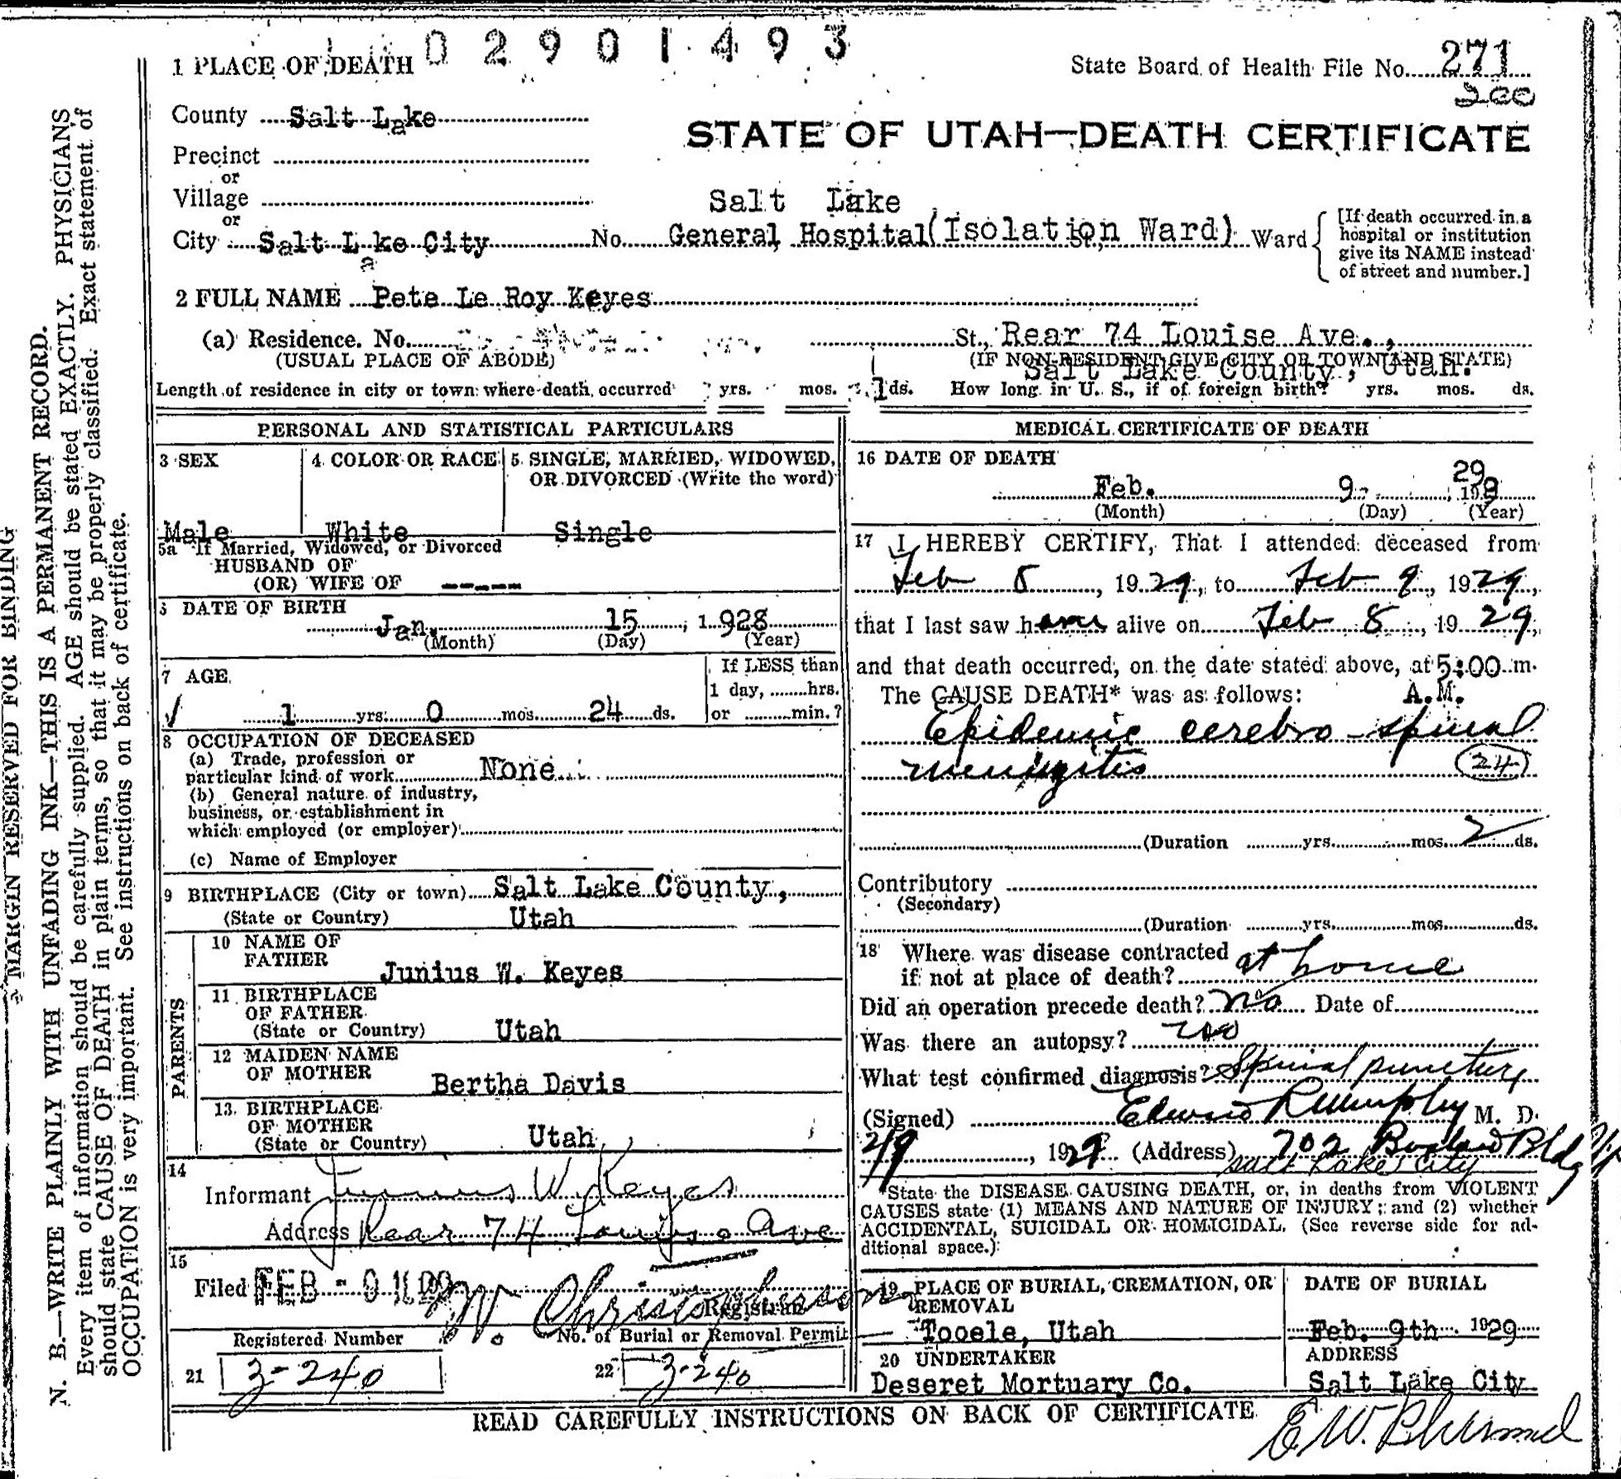 02901493
1 PLACE OF DEATH
State Board of Health File No. 271
200
County Salt Lake
STATE OF UTAH—DEATH CERTIFICATE
Precinct
or
Village
or
Salt Lake
City Salt Lake City No. General Hospital (Isolation Ward) Ward
[If death occurred in a hospital or institution give its NAME instead of street and number.]
2 FULL NAME Pete Le Roy Keyes
(a) Residence. No. St., Rear 74 Louise Ave.,
(USUAL PLACE OF ABODE) (IF NON-RESIDENT GIVE CITY OR TOWN AND STATE)
Salt Lake County, Utah.
Length of residence in city or town where death occurred yrs. mos. 1 ds. How long in U. S., if of foreign birth? yrs. mos. ds.
PERSONAL AND STATISTICAL PARTICULARS
3 SEX
Male
4 COLOR OR RACE
White
5. SINGLE, MARRIED, WIDOWED, OR DIVORCED (Write the word)
Single
5a If Married, Widowed, or Divorced
HUSBAND OF
(OR) WIFE OF -----
6 DATE OF BIRTH
Jan. 15, 1928
(Month) (Day) (Year)
7 AGE
1 yrs. 0 mos. 24 ds.
If LESS than
1 day, ........hrs.
or .........min.?
8 OCCUPATION OF DECEASED
(a) Trade, profession or
particular kind of work None
(b) General nature of industry,
business, or establishment in
which employed (or employer)
(c) Name of Employer
9 BIRTHPLACE (City or town) Salt Lake County,
(State or Country) Utah
PARENTS
10 NAME OF
FATHER Junius W. Keyes
11 BIRTHPLACE
OF FATHER
(State or Country) Utah
12 MAIDEN NAME
OF MOTHER Bertha Davis
13. BIRTHPLACE
OF MOTHER
(State or Country) Utah
14
Informant Junius W. Keyes
Address Rear 74 Louise Ave
15
Filed FEB - 9 W. Christopherson
Registrar
Registered Number No. of Burial or Removal Permit
21 3-240 22 3-240
MEDICAL CERTIFICATE OF DEATH
16 DATE OF DEATH
Feb. 9 29
(Month) (Day) (Year)
17 I HEREBY CERTIFY, That I attended deceased from
Feb 8, 1929, to Feb 9, 1929,
that I last saw him alive on Feb 8, 1929,
and that death occurred, on the date stated above, at 5:00 m.
The CAUSE DEATH* was as follows: A.M.
Epidemic cerebro-spinal
meningitis (24)
(Duration yrs. mos. 2 ds.
Contributory
(Secondary)
(Duration yrs. mos. ds.
18 Where was disease contracted
if not at place of death? at home
Did an operation precede death? No Date of
Was there an autopsy? no
What test confirmed diagnosis? Spinal puncture
(Signed) Edwin R Murphy M. D.
2/9, 1929 (Address) 702 Boston Bldg
Salt Lake City
*State the DISEASE CAUSING DEATH, or, in deaths from VIOLENT
CAUSES state (1) MEANS AND NATURE OF INJURY; and (2) whether
ACCIDENTAL, SUICIDAL OR HOMICIDAL. (See reverse side for ad-
ditional space.)
19 PLACE OF BURIAL, CREMATION, OR
REMOVAL
Tooele, Utah
DATE OF BURIAL
Feb. 9th 1929
20 UNDERTAKER
Deseret Mortuary Co.
ADDRESS
Salt Lake City
READ CAREFULLY INSTRUCTIONS ON BACK OF CERTIFICATE
E.W.
MARGIN RESERVED FOR BINDING
N. B.—WRITE PLAINLY WITH UNFADING INK—THIS IS A PERMANENT RECORD.
Every item of information should be carefully supplied. AGE should be stated EXACTLY. PHYSICIANS
should state CAUSE OF DEATH in plain terms, so that it may be properly classified. Exact statement of
OCCUPATION is very important. See instructions on back of certificate.